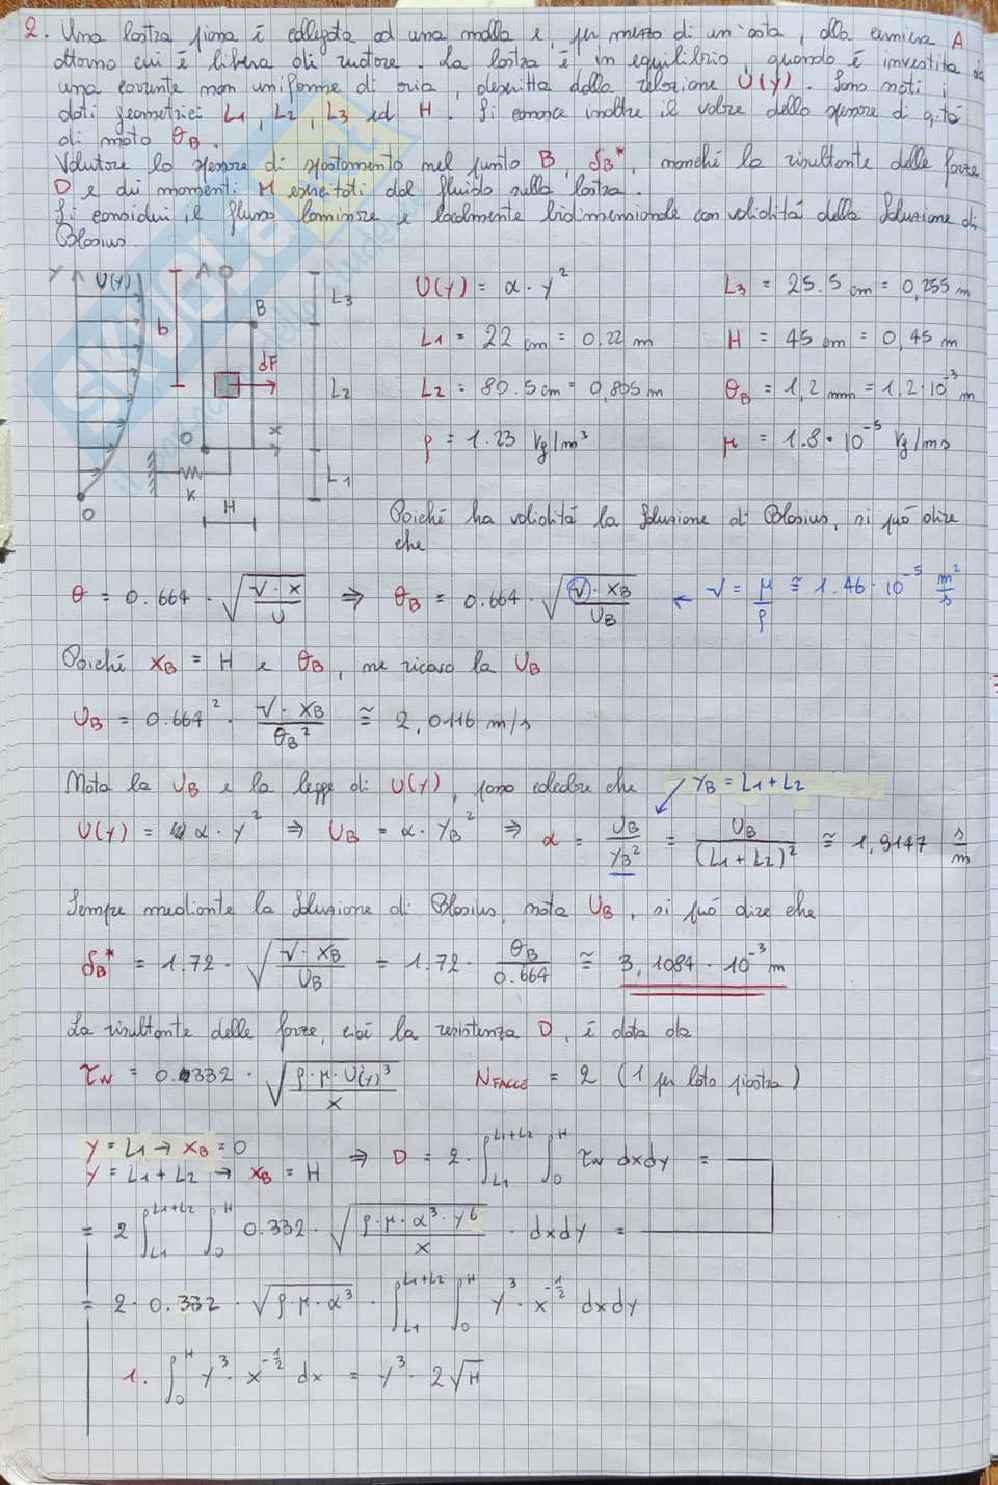 2. Una lastra piana è collegata ad una molla e, per mezzo di un'asta, alla cerniera A
attorno cui è libera di ruotare. La lastra è in equilibrio, quando è investita da
una corrente non uniforme di aria, descritta dalla relazione U(y). Sono noti i
dati geometrici L1, L2, L3 ed H. Si conosce inoltre il valore dello spessore di q.tà
di moto θB.
Valutare lo spessore di spostamento nel punto B, δB*, nonché la risultante delle forze
D e dei momenti M esercitati dal fluido sulla lastra.
Si consideri il flusso laminare e localmente bidimensionale con validità della Soluzione di
Blasius.
Y U(y) A L3 U(y) = α · y² L3 = 25.5 cm = 0,255 m
b B L1 = 22 cm = 0.22 m H = 45 cm = 0,45 m
dF L2 L2 = 80.5 cm = 0,805 m θB = 1,2 mm = 1.2·10⁻³ m
O x ρ = 1.23 kg/m³ μ = 1.8·10⁻⁵ kg/ms
K L1
O H Poiché ha validità la Soluzione di Blasius, si può dire
che
θ = 0.664 · √(ν·x/U) ⇒ θB = 0.664 · √(ν·xB/UB) ← ν = μ/ρ ≅ 1.46·10⁻⁵ m²/s
Poiché xB = H e θB, me ricavo la UB
UB = 0.664² · ν·xB/θB² ≅ 2,0116 m/s
Nota la UB e la legge di U(y), posso calcolare che YB = L1+L2
U(y) = α·y² ⇒ UB = α·YB² ⇒ α = UB/YB² = UB/(L1+L2)² ≅ 1,9147 s/m
Sempre mediante la Soluzione di Blasius, nota UB, si può dire che
δB* = 1.72 · √(ν·xB/UB) = 1.72 · θB/0.664 ≅ 3,1084 · 10⁻³ m
La risultante delle forze, cioè la resistenza D, è data da
τw = 0.332 · √(ρ·μ·U(y)³/x) NFACCE = 2 (1 per lato piastra)
y = L1 → xB = 0
y = L1+L2 → xB = H ⇒ D = 2·∫_L1^L1+L2 ∫_0^H τw dxdy =
= 2 ∫_L1^L1+L2 ∫_0^H 0.332 · √(ρ·μ·α³·y⁶/x) · dxdy =
= 2· 0.332 · √(ρ·μ·α³) · ∫_L1^L1+L2 ∫_0^H y³ · x^-1/2 dxdy
1. ∫_0^H y³ · x^-1/2 dx = y³ · 2√H